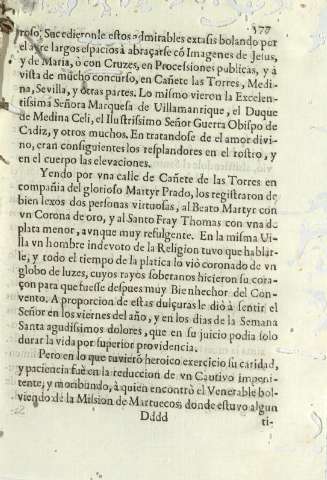 577
roso. Sucedieronle estos admirables extasis bolando por
el ayre largos espacios à abraçarse cõ Imagenes de Jesus,
y de Maria, ò con Cruzes, en Processiones publicas, y à
vista de mucho concurso, en Cañete las Torres, Medi-
na, Sevilla, y otras partes. Lo mismo vieron la Excelen-
tissima Señora Marquesa de Villamanrique, el Duque
de Medina Celi, el Ilustrissimo Señor Guerra Obispo de
Cadiz, y otros muchos. En tratandose de el amor divi-
no, eran consiguientes los resplandores en el rostro, y
en el cuerpo las elevaciones.
Yendo por vna calle de Cañete de las Torres en
compañia del glorioso Martyr Prado, los registraron de
bien lexos dos personas virtuosas, al Beato Martyr con
vn Corona de oro, y al Santo Fray Thomas con vna de
plata menor, aunque muy refulgente. En la misma Vi-
lla vn hombre indevoto de la Religion tuvo que hablar-
le, y todo el tiempo de la platica lo viò coronado de vn
globo de luzes, cuyos rayos soberanos hicieron su cora-
çon para que fuesse despues muy Bienhechor del Con-
vento. A proporcion de estas dulçuras le diò à sentir el
Señor en los viernes del año, y en los dias de la Semana
Santa agudissimos dolores, que en su juicio podia solo
durar la vida por superior providencia.
Pero en lo que tuvierõ heroico exercicio su caridad,
y paciencia fuè en la reduccion de vn Cautivo impeni-
tente, y moribundo, à quien encontrò el Venerable bol-
viendo de la Mision de Marruecos, donde estuvo algun
Dddd
ti-